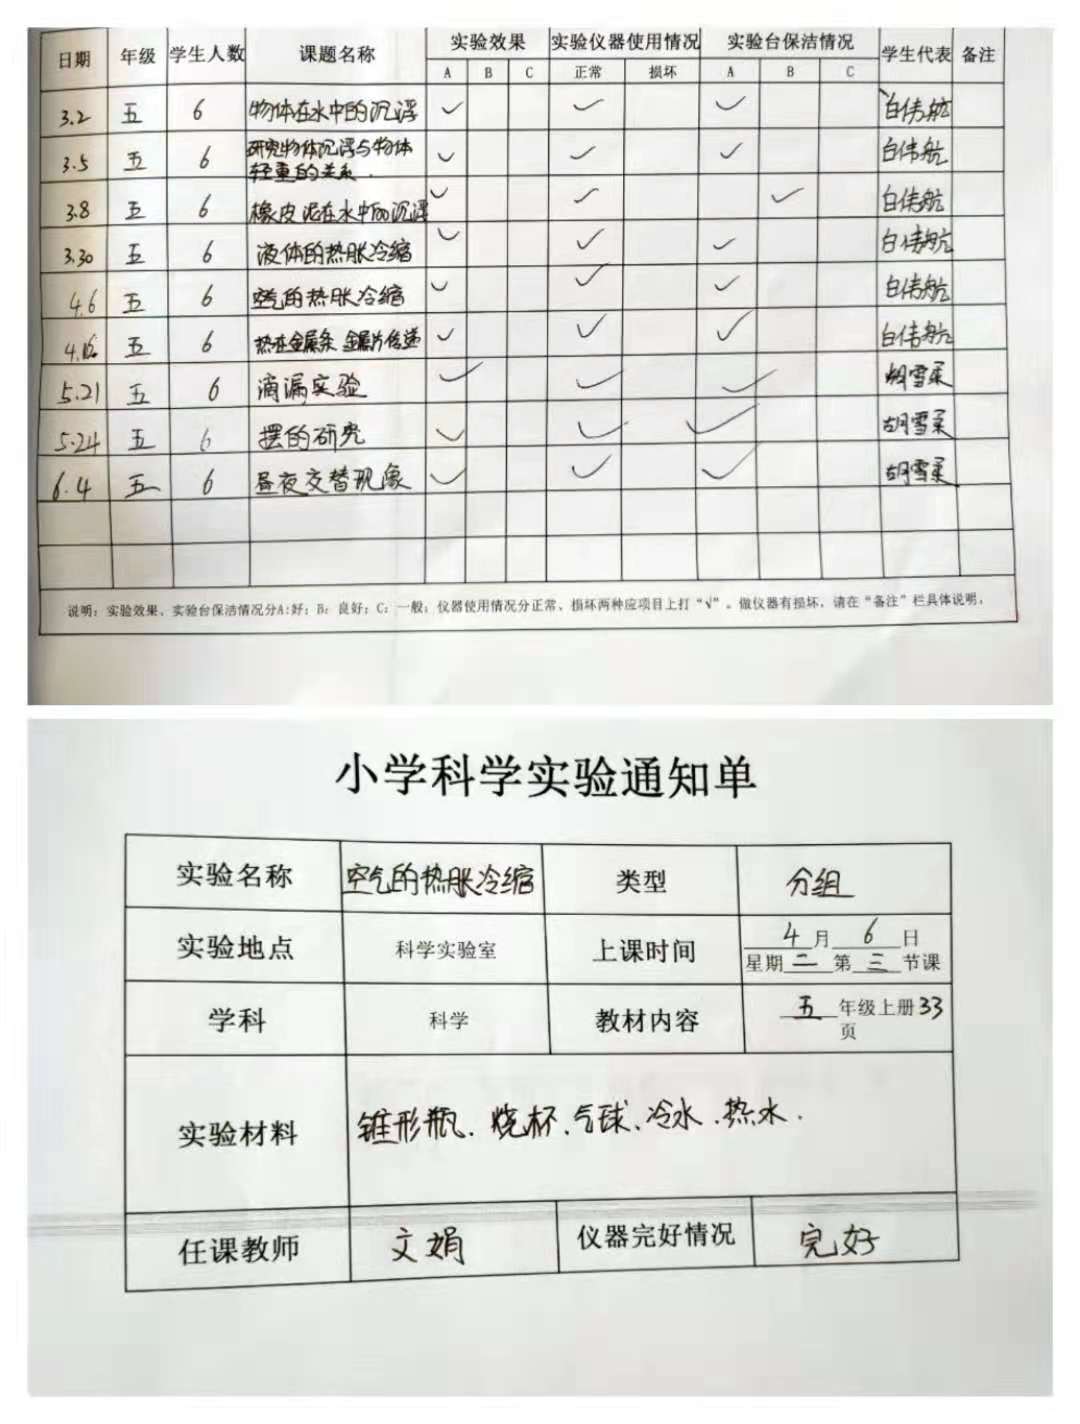 日期 年级 学生人数 课题名称 实验效果 实验仪器使用情况 实验台保洁情况 学生代表 备注
A B C 正常 损坏 A B C
3.2 五 6 物体在水中的沉浮 ✓ ✓ ✓ 白伟航
3.5 五 6 研究物体沉浮与物体
轻重的关系. ✓ ✓ ✓ 白伟航
3.8 五 6 橡皮泥在水中的沉浮 ✓ ✓ ✓ 白伟航
3.30 五 6 液体的热胀冷缩 ✓ ✓ ✓ 白伟航
4.6 五 6 空气的热胀冷缩 ✓ ✓ ✓ 白伟航
五 6 热在金属条 金属片传递 ✓ ✓ ✓ 白伟航
5.21 五 6 滴漏实验 ✓ ✓ ✓ 胡雪柔
5.24 五 6 摆的研究 ✓ ✓ ✓ 胡雪柔
6.4 五 6 昼夜交替现象 ✓ ✓ ✓ 胡雪柔
说明：实验效果、实验台保洁情况分A:好；B：良好；C：一般；仪器使用情况分正常、损坏两种应项目上打“√”。做仪器有损坏，请在“备注”栏具体说明。
小学科学实验通知单
实验名称 空气的热胀冷缩 类型 分组
实验地点 科学实验室 上课时间 4月6日
星期二第三节课
学科 科学 教材内容 五年级上册33
页
实验材料 锥形瓶、烧杯、气球、冷水、热水.
任课教师 文娟 仪器完好情况 完好